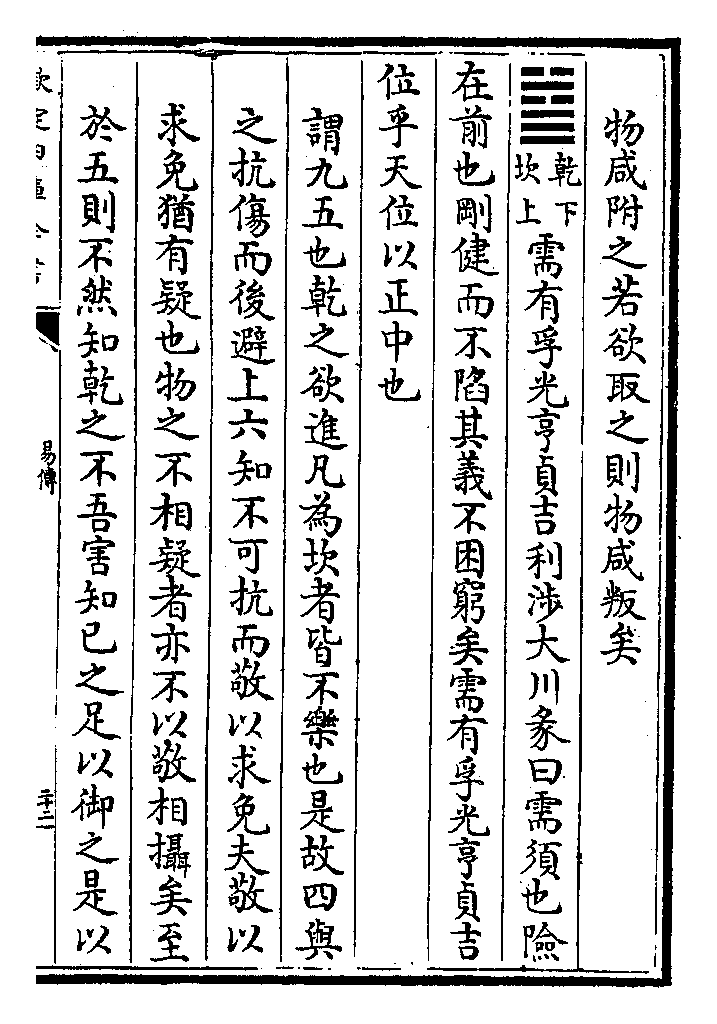 物咸附之若欲取之則物咸叛矣
䷄乾下坎上需有孚光亨貞吉利涉大川彖曰需須也險
在前也剛健而不陷其義不困窮矣需有孚光亨貞吉
位乎天位以正中也
謂九五也乾之欲進凡為坎者皆不樂也是故四與
之抗傷而後避上六知不可抗而敬以求免夫敬以
求免猶有疑也物之不相疑者亦不以敬相攝矣至
於五則不然知乾之不吾害知已之足以御之是以
欽定四庫全書
易傳